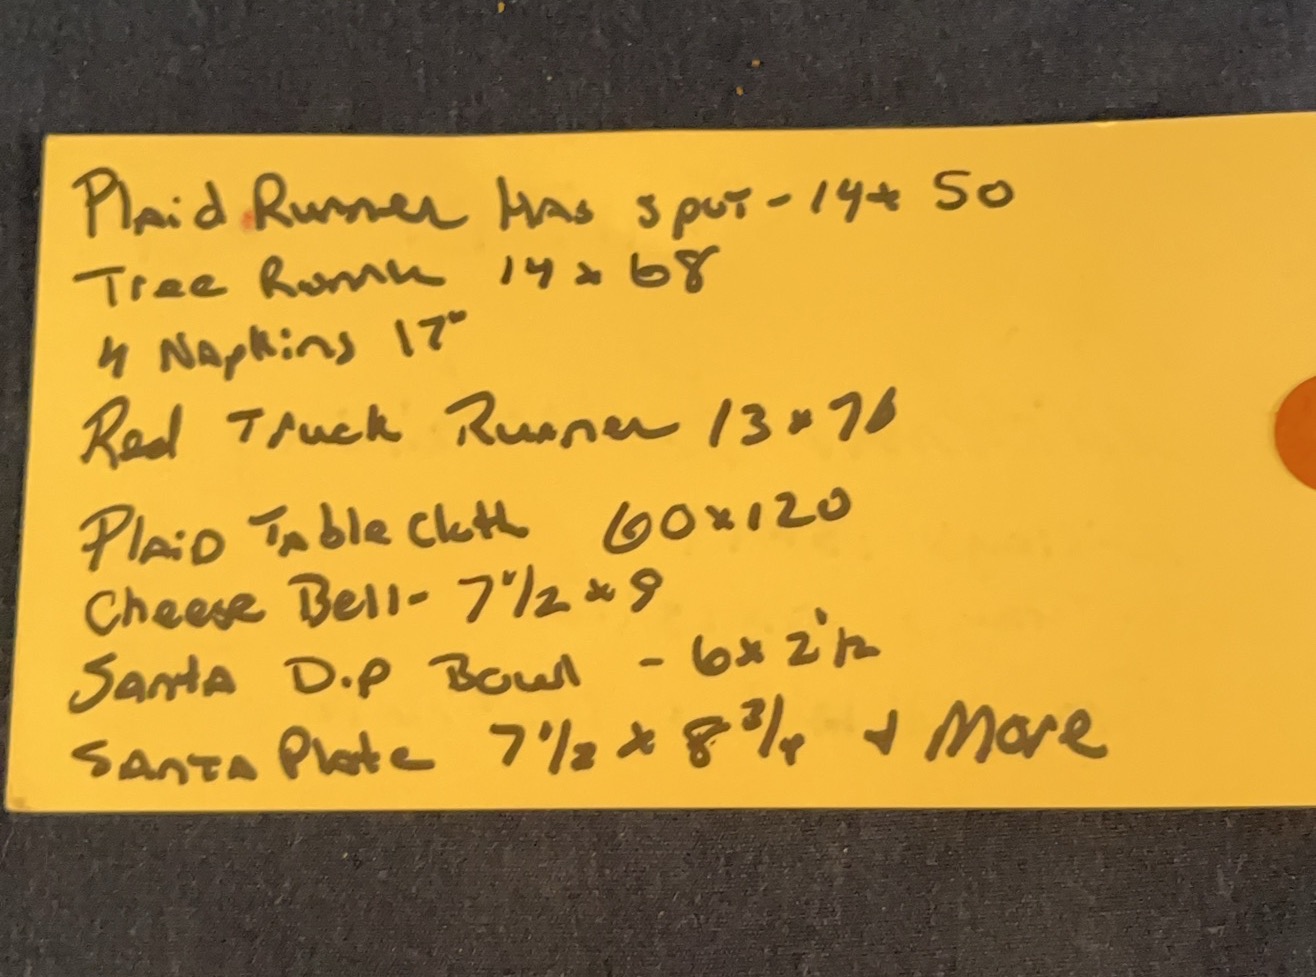 Plaid Runner Has spot - 14 x 50
Tree Runner 14 x 68
4 Napkins 17"
Red Truck Runner 13 x 76
Plaid Table Cloth 60 x 120
Cheese Bell - 7 1/2 x 9
Santa Dip Bowl - 6 x 2 1/2
Santa Plate 7 1/2 x 8 3/4 + More